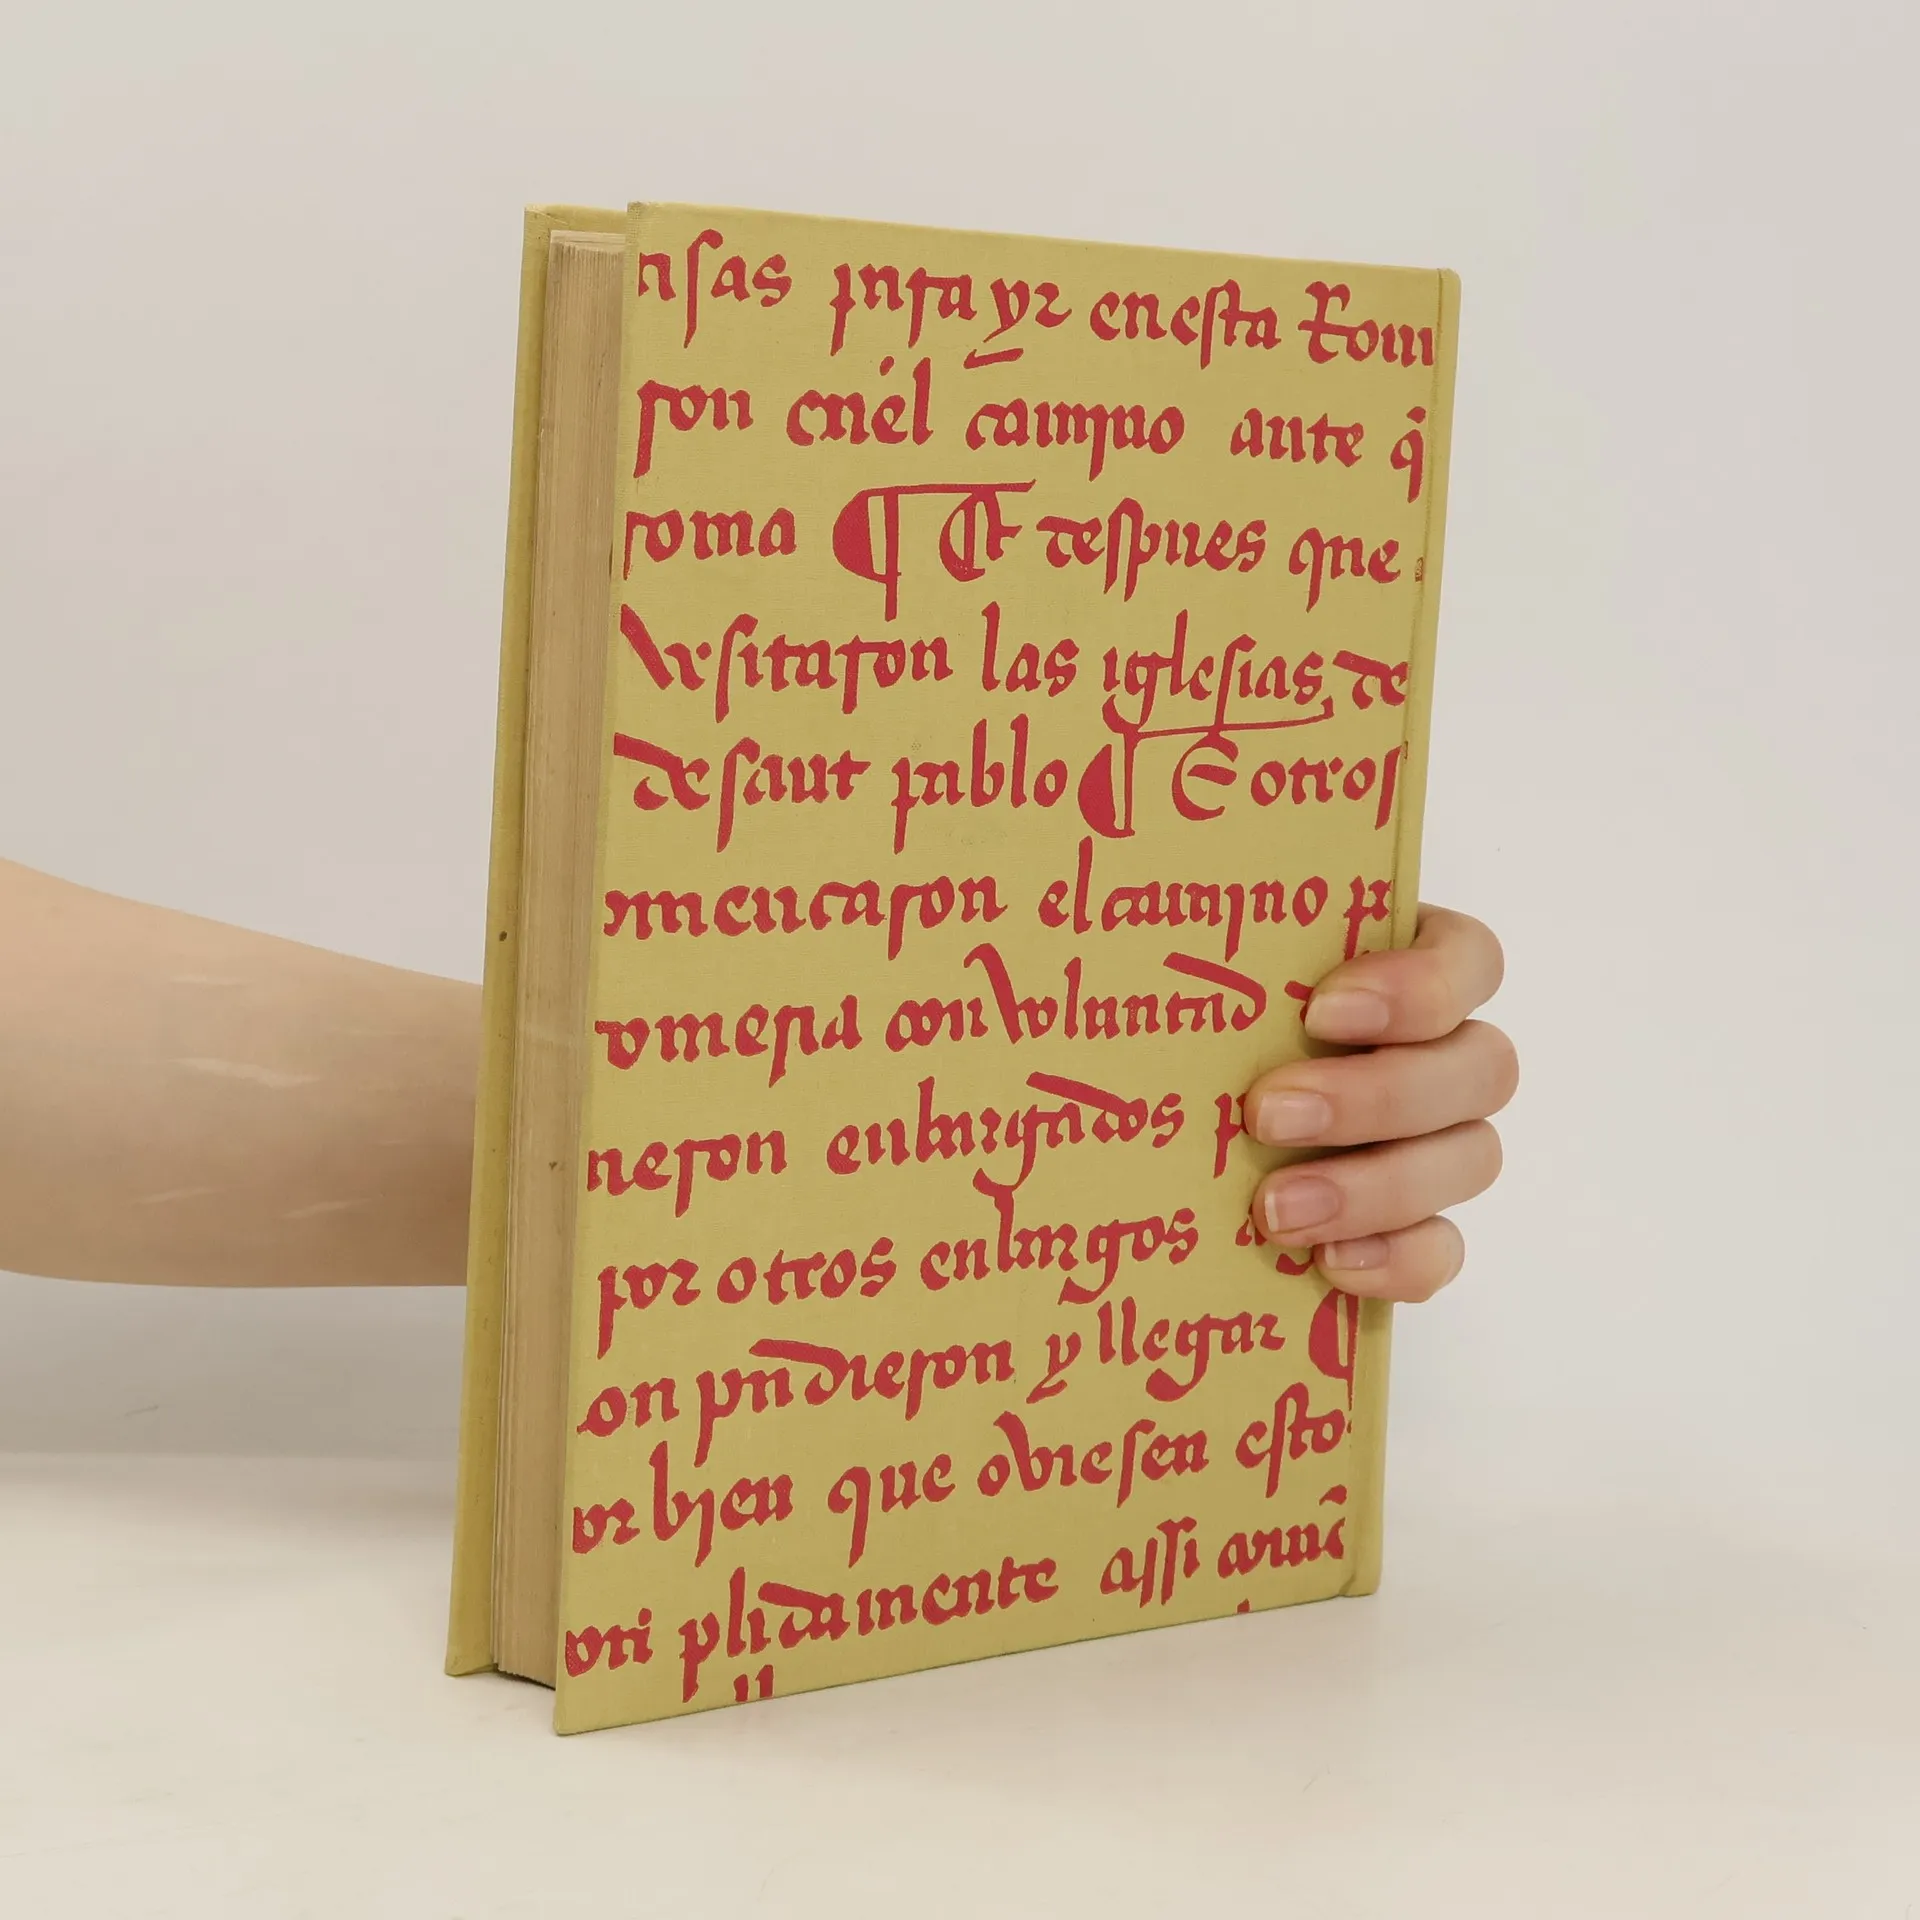 nsas para yr en esta Rom
ron enel camino ante q̄
roma ¶ Et despues que
visitaron las iglesias de
de sant pablo ¶ E otros
omencaron el camino p
romeria con voluntad
neron enbargados p
por otros enbargos
on pudieron y llegar ¶
or bien que oviesen esto
plidamente assi